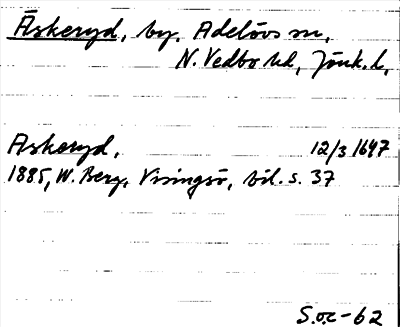 Äskeryd, by. Adelövs sn,
N. Vedbo hd, Jönk. l.
Askeryd. 12/3 1647
1885, W. Berg, Visingsö, bil. s. 37
S.o.c-62